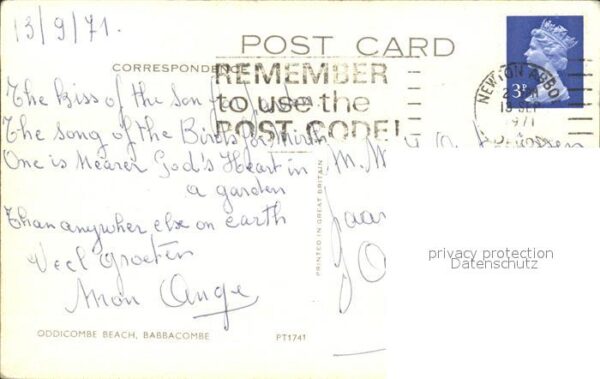 13/9/71.
POST CARD
CORRESPONDENCE
REMEMBER
to use the
POST CODE!
3P
NEWTON ABBO
13 SEP
1971
The Kiss of the Son for
The Song of the Birds for Mirth
One is Nearer God's Heart in
a garden
Than anywher else on earth
Veel Groeten
Ange
PRINTED IN GREAT BRITAIN
privacy protection
Datenschutz
ODDICOMBE BEACH, BABBACOMBE
PT1741